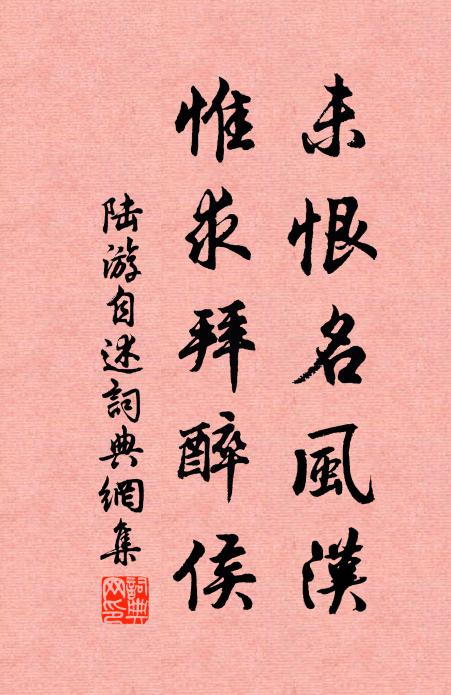 未恨名風漢
惟求拜醉侯
陆游自述詞典網集
詞典網印